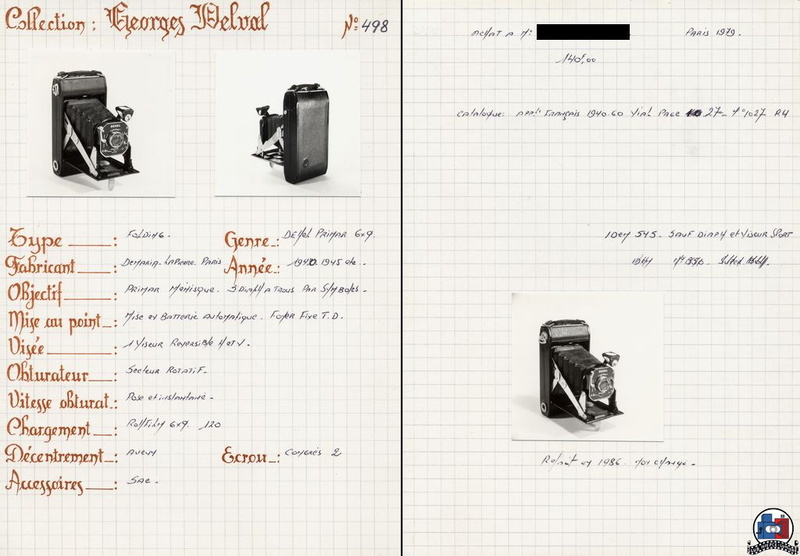 Collection : Georges Delval
N° 498
Type : Folding.
Genre : Dehel Primar 6x9.
Fabricant : Demaria-Lapierre. Paris
Année : 1945 etc.
Objectif : Primar Ménisque. 3 Diaph à Trous Par Symboles.
Mise au point : Mise en Batterie Automatique. Foyer Fixe T.D.
Visée : 1 Viseur Reversible H et V.
Obturateur : Secteur Rotatif.
Vitesse obturat : Pose et instantané.
Chargement : Rollfilm 6x9. 120
Décentrement : Aucun
Ecrou : Congrès 2
Accessoires : Sac.
Achat a Mr
Paris 1979.
140f,00
Catalogue: Français 1940.60 Vial Page 27- n°1027 R4
545. Sauf Diaph et Viseur Sport
Refait en 1986.